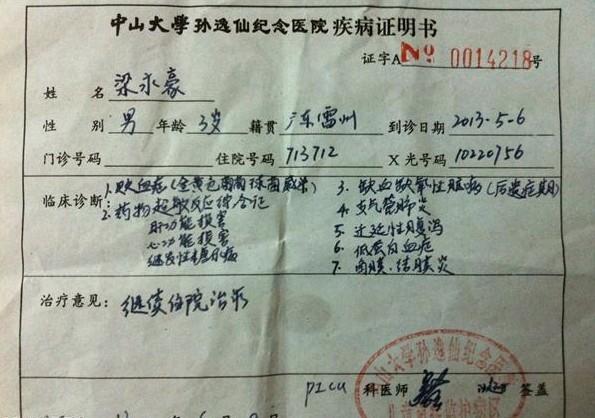 中山大学孙逸仙纪念医院疾病证明书
证字A No 0014218号
姓 名 梁永豪
性 别 男 年龄 3岁 籍贯 广东雷州 到诊日期 2013-5-6
门诊号码 住院号码 713712 X光号码 10220756
临床诊断:
1. 败血症(金黄色葡萄球菌感染)
2. 药物超敏反应综合征
肝功能损害
心功能损害
继发性糖尿病
3. 缺血缺氧性脑病(后遗症期)
4. 支气管肺炎
5. 迁延性腹泻
6. 低蛋白血症
7. 角膜、结膜炎
治疗意见: 继续住院治疗
PICU 科医师 签盖
中山大学孙逸仙纪念医